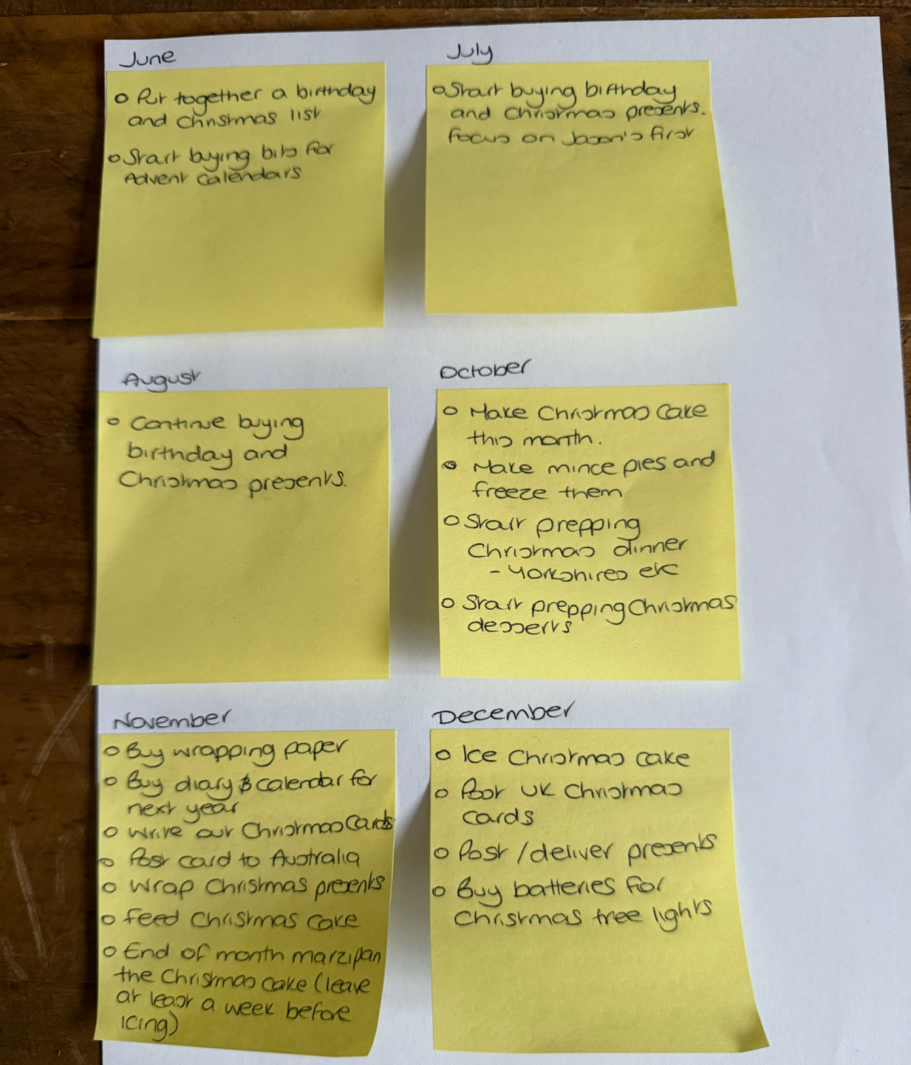 June
o Put together a birthday
and Christmas list
o Start buying bits for
Advent Calendars
July
o Start buying birthday
and Christmas presents.
Focus on Jason's first
August
o Continue buying
birthday and
Christmas presents.
October
o Make Christmas Cake
this month.
o Make mince pies and
freeze them
o Start prepping
Christmas dinner
- Yorkshires etc
o Start prepping Christmas
desserts
November
o Buy wrapping paper
o Buy diary & calendar for
next year
o Write out Christmas Cards
o Post card to Australia
o Wrap Christmas presents
o Feed Christmas Cake
o End of month marzipan
the Christmas cake (leave
at least a week before
icing)
December
o Ice Christmas cake
o Post UK Christmas
cards
o Post / deliver presents
o Buy batteries for
Christmas tree lights